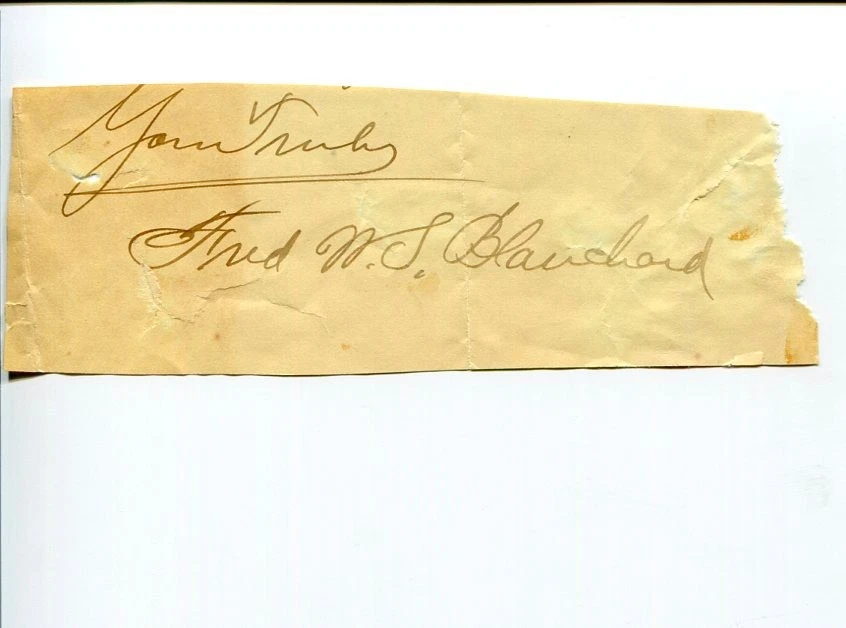 Yours Truly
Fred W. S. Blanchard